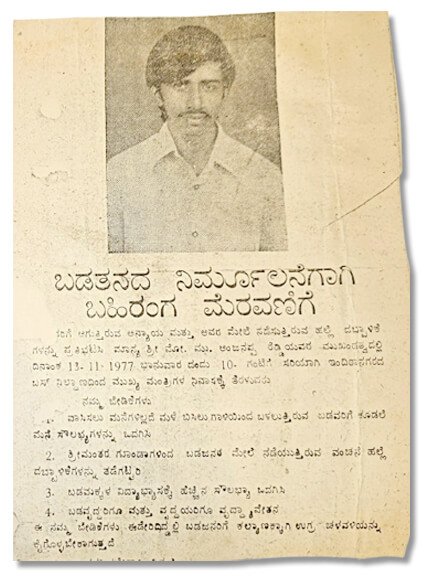 ಬಡತನದ ನಿರ್ಮೂಲನೆಗಾಗಿ
ಬಹಿರಂಗ ಮೆರವಣಿಗೆ
ಸರಿಗೆ ಆಗುತ್ತಿರುವ ಅನ್ಯಾಯ ಮತ್ತು ಅವರ ಮೇಲೆ ನಡೆಸುತ್ತಿರುವ ಹಲ್ಲೆ ದಬ್ಬಾಳಿಕೆ
ಗಳನ್ನು ಪ್ರತಿಭಟಿಸಿ ಮಾನ್ಯ ಶ್ರೀ ಮೋ. ಮು. ಅಂಜನಪ್ಪ ರೆಡ್ಡಿಯವರ ಮುಖಂಡತ್ವದಲ್ಲಿ
ದಿನಾಂಕ 13-11-1977 ಭಾನುವಾರ ದಂದು 10- ಗಂಟೆಗೆ ಸರಿಯಾಗಿ ಇಂದಿರಾನಗರದ
ಬಸ್ ನಿಲ್ದಾಣದಿಂದ ಮುಖ್ಯ ಮಂತ್ರಿಗಳ ನಿವಾಸಕ್ಕೆ ತೆರಳುವರು
ನಮ್ಮ ಬೇಡಿಕೆಗಳು
1. ವಾಸಿಸಲು ಮನೆಗಳಿಲ್ಲದೆ ಮಳೆ ಬಿಸಿಲು ಗಾಳಿಯಿಂದ ಬಳಲುತ್ತಿರುವ ಬಡವರಿಗೆ ಕೂಡಲೆ
ಮನೆ ಸೌಲಭ್ಯಗಳನ್ನು ಒದಗಿಸಿ
2. ಶ್ರೀಮಂತರ ಗೂಂಡಾಗಳಿಂದ ಬಡಜನರ ಮೇಲೆ ನಡೆಯುತ್ತಿರುವ ವಂಚನೆ ಹಲ್ಲೆ
ದಬ್ಬಾಳಿಕೆಗಳನ್ನು ತಡೆಗಟ್ಟಿರಿ
3. ಬಡಮಕ್ಕಳ ವಿದ್ಯಾಭ್ಯಾಸಕ್ಕೆ ಹೆಚ್ಚಿನ ಸೌಲಭ್ಯ ಒದಗಿಸಿ
4. ಬಡವೃದ್ದರಿಗೂ ಮತ್ತು ವೃದ್ದೆಯರಿಗೂ ವೃದ್ದಾಪ್ಯವೇತನ
ಈ ನಮ್ಮ ಬೇಡಿಕೆಗಳು ಈಡೇರದಿದ್ದಲ್ಲಿ ಬಡಜನರಿಗೆ ಕಲ್ಯಾಣಕ್ಕಾಗಿ ಉಗ್ರ ಚಳವಳಿಯನ್ನು
ಕೈಗೊಳ್ಳಬೇಕಾಗುತ್ತದೆ